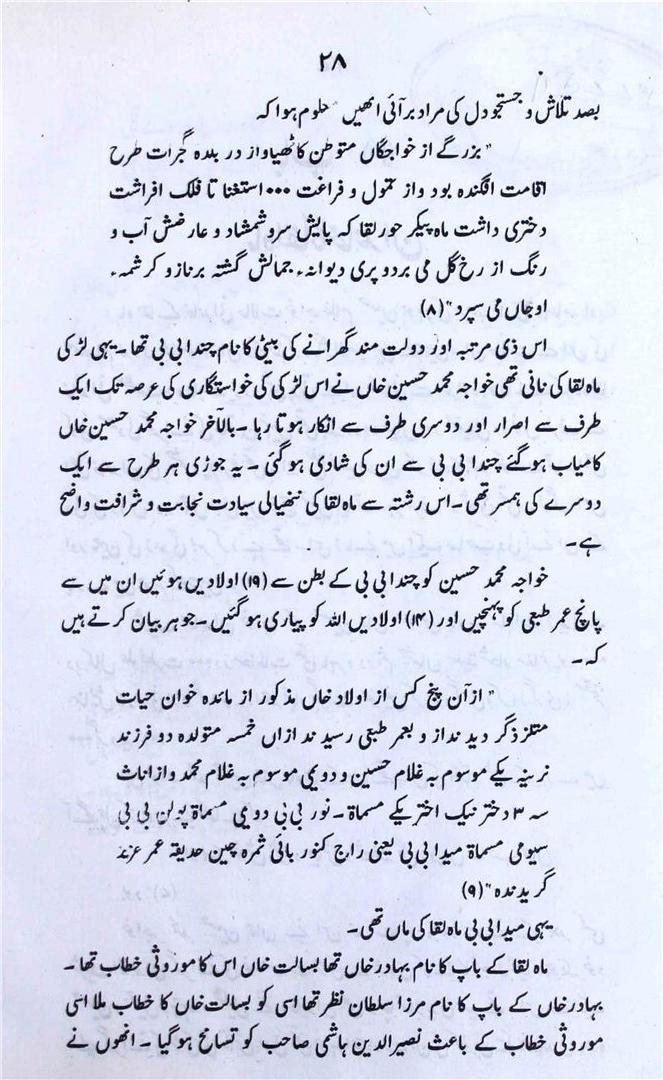 ۲۸
بصد تلاش و جستجو دل کی مراد بر آئی انھیں معلوم ہوا کہ
"بزرگے از خواجگان متوطن کاٹھیاواڑ در بلدہ گجرات طرح
اقامت افگندہ بود و از تمول و فراغت ۰۰۰ استغنا تا فلک افراشت
دختری داشت ماہ پیکر حور لقا کہ پایش سرو شمشاد و عارضش آب و
رنگ از رخ گل می برد و پری دیوانہ، جمالش گشتہ بر ناز و کرشمہ،
او جاں می سپرد" (۸)
اس ذی مرتبہ اور دولت مند گھرانے کی بیٹی کا نام چندا بی بی تھا۔ یہی لڑکی
ماہ لقا کی نانی تھی خواجہ محمد حسین خاں نے اس لڑکی کی خواستگاری کی عرصہ تک ایک
طرف سے اصرار اور دوسری طرف سے انکار ہوتا رہا۔ بالآخر خواجہ محمد حسین خاں
کامیاب ہوگئے چندا بی بی سے ان کی شادی ہوگئی۔ یہ جوڑی ہر طرح سے ایک
دوسرے کی ہمسر تھی۔ اس رشتہ سے ماہ لقا کی ننھیالی سیادت نجابت و شرافت واضح
ہے۔
خواجہ محمد حسین کو چندا بی بی کے بطن سے (۱۹) اولادیں ہوئیں ان میں سے
پانچ عمر طبعی کو پہنچیں اور (۱۴) اولادیں اللہ کو پیاری ہوگئیں۔ جوہر بیان کرتے ہیں
کہ۔
"ازآن پنج کس از اولاد خاں مذکور از مائدہ خوان حیات
متلذذ گر دیدند از و بعمر طبعی رسیدند ازاں خمسہ متولدہ دو فرزند
نرینہ یکے موسوم بہ غلام حسین و دویمی موسوم بہ غلام محمد و از اناث
سہ ۳ دختر نیک اختر یکے مسماۃ۔ نور بی بی دویمی مسماۃ پولن بی بی
سیومی مسماۃ میدا بی بی یعنی راج کنور بائی ثمرہ چین حدیقہ عمر عزیز
گردیدندہ" (۹)
یہی میدا بی بی ماہ لقا کی ماں تھی۔
ماہ لقا کے باپ کا نام بہادر خاں تھا بسالت خاں اس کا موروثی خطاب تھا۔
بہادر خاں کے باپ کا نام مرزا سلطان نظر تھا اسی کو بسالت خاں کا خطاب ملا اسی
موروثی خطاب کے باعث نصیرالدین ہاشمی صاحب کو تسامح ہوگیا۔ انھوں نے